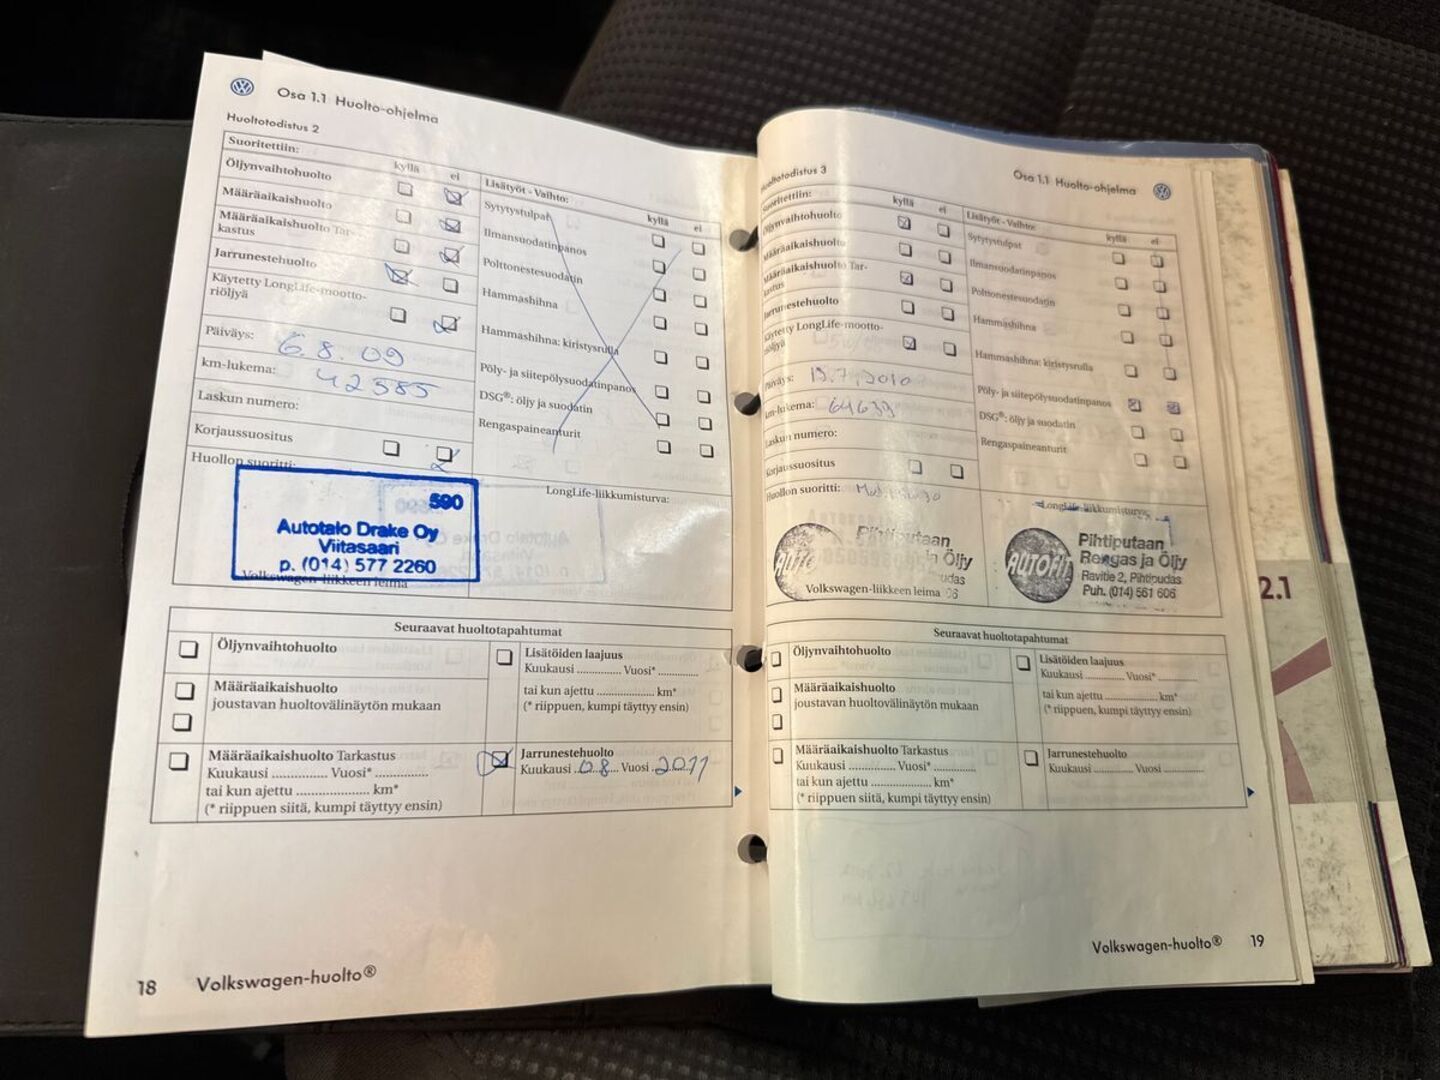 Osa 1.1 Huolto-ohjelma
Huoltotodistus 2
Suoritettiin:
kyllä ei
Öljynvaihtohuolto
Määräaikaishuolto
Määräaikaishuolto Tar-
kastus
Jarrunestehuolto
Käytetty LongLife-mootto-
riöljyä
Päiväys: 6.8.09
km-lukema: 42385
Laskun numero:
Korjaussuositus
Huollon suoritti:
Lisätyöt - Vaihto:
kyllä ei
Sytytystulpat
Ilmansuodatinpanos
Polttonestesuodatin
Hammashihna
Hammashihna: kiristysrulla
Pöly- ja siitepölysuodatinpanos
DSG®: öljy ja suodatin
Rengaspaineanturit
LongLife-liikkumisturva:
590
Autotalo Drake Oy
Viitasaari
p. (014) 577 2260
Volkswagen-liikkeen leima
Seuraavat huoltotapahtumat
Öljynvaihtohuolto
Määräaikaishuolto
joustavan huoltovälinäytön mukaan
Määräaikaishuolto Tarkastus
Kuukausi ............... Vuosi* ...............
tai kun ajettu .................... km*
(* riippuen siitä, kumpi täyttyy ensin)
Lisätöiden laajuus
Kuukausi ............... Vuosi* ...............
tai kun ajettu .................... km*
(* riippuen, kumpi täyttyy ensin)
Jarrunestehuolto
Kuukausi 08 Vuosi 2011
18 Volkswagen-huolto®
Osa 1.1 Huolto-ohjelma
Huoltotodistus 3
Suoritettiin:
kyllä ei
Öljynvaihtohuolto
Määräaikaishuolto
Määräaikaishuolto Tar-
kastus
Jarrunestehuolto
Käytetty LongLife-mootto-
riöljyä
Päiväys: 19.7.2010
km-lukema: 64633
Laskun numero:
Korjaussuositus
Huollon suoritti:
Lisätyöt - Vaihto:
kyllä ei
Sytytystulpat
Ilmansuodatinpanos
Polttonestesuodatin
Hammashihna
Hammashihna: kiristysrulla
Pöly- ja siitepölysuodatinpanos
DSG®: öljy ja suodatin
Rengaspaineanturit
LongLife-liikkumisturva:
Pihtiputaan
ja Öljy
Volkswagen-liikkeen leima
AUTOFIT
Pihtiputaan
Rengas ja Öljy
Ravitie 2, Pihtipudas
Puh. (014) 561 606
Seuraavat huoltotapahtumat
Öljynvaihtohuolto
Määräaikaishuolto
joustavan huoltovälinäytön mukaan
Määräaikaishuolto Tarkastus
Kuukausi ............... Vuosi* ...............
tai kun ajettu .................... km*
(* riippuen siitä, kumpi täyttyy ensin)
Lisätöiden laajuus
Kuukausi ............... Vuosi* ...............
tai kun ajettu .................... km*
(* riippuen, kumpi täyttyy ensin)
Jarrunestehuolto
Kuukausi ............... Vuosi ...............
Volkswagen-huolto® 19
2.1